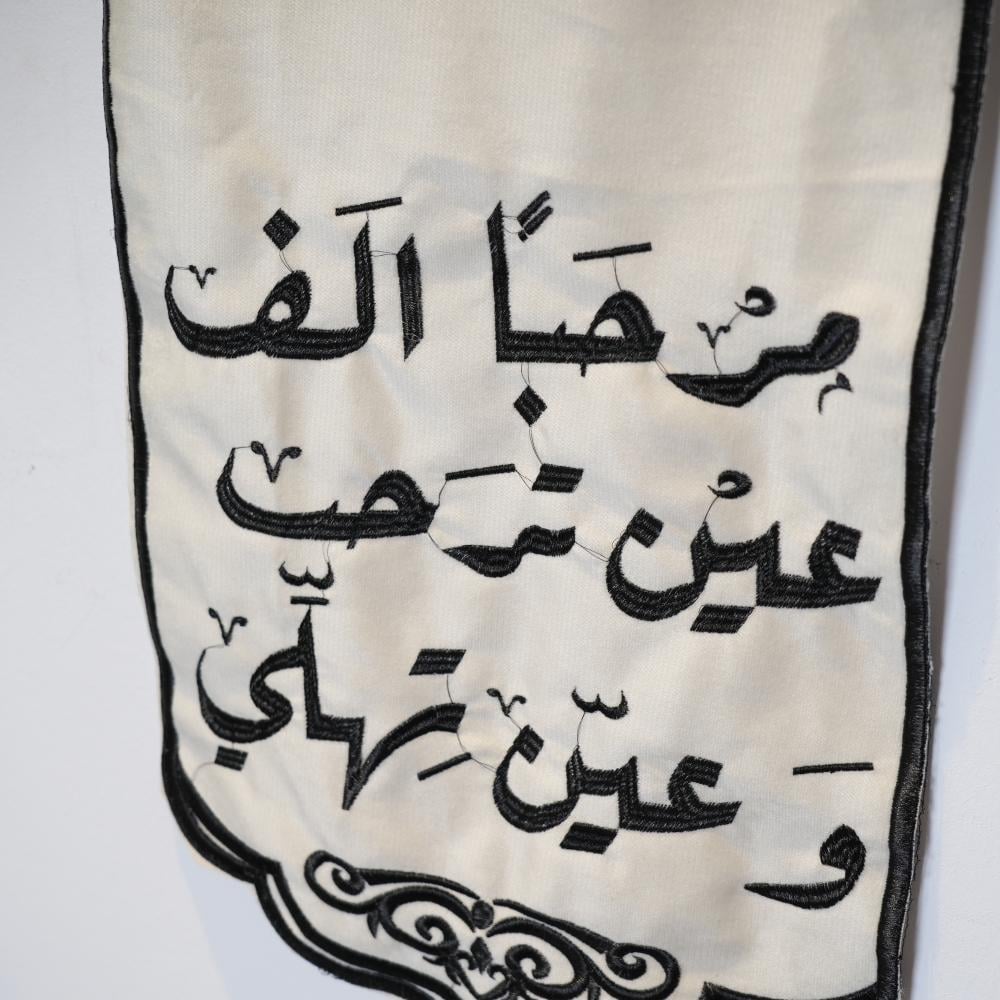 مرْحَبًا الَف
عيْن ترَحب
وَ عيّن تِهلَّي